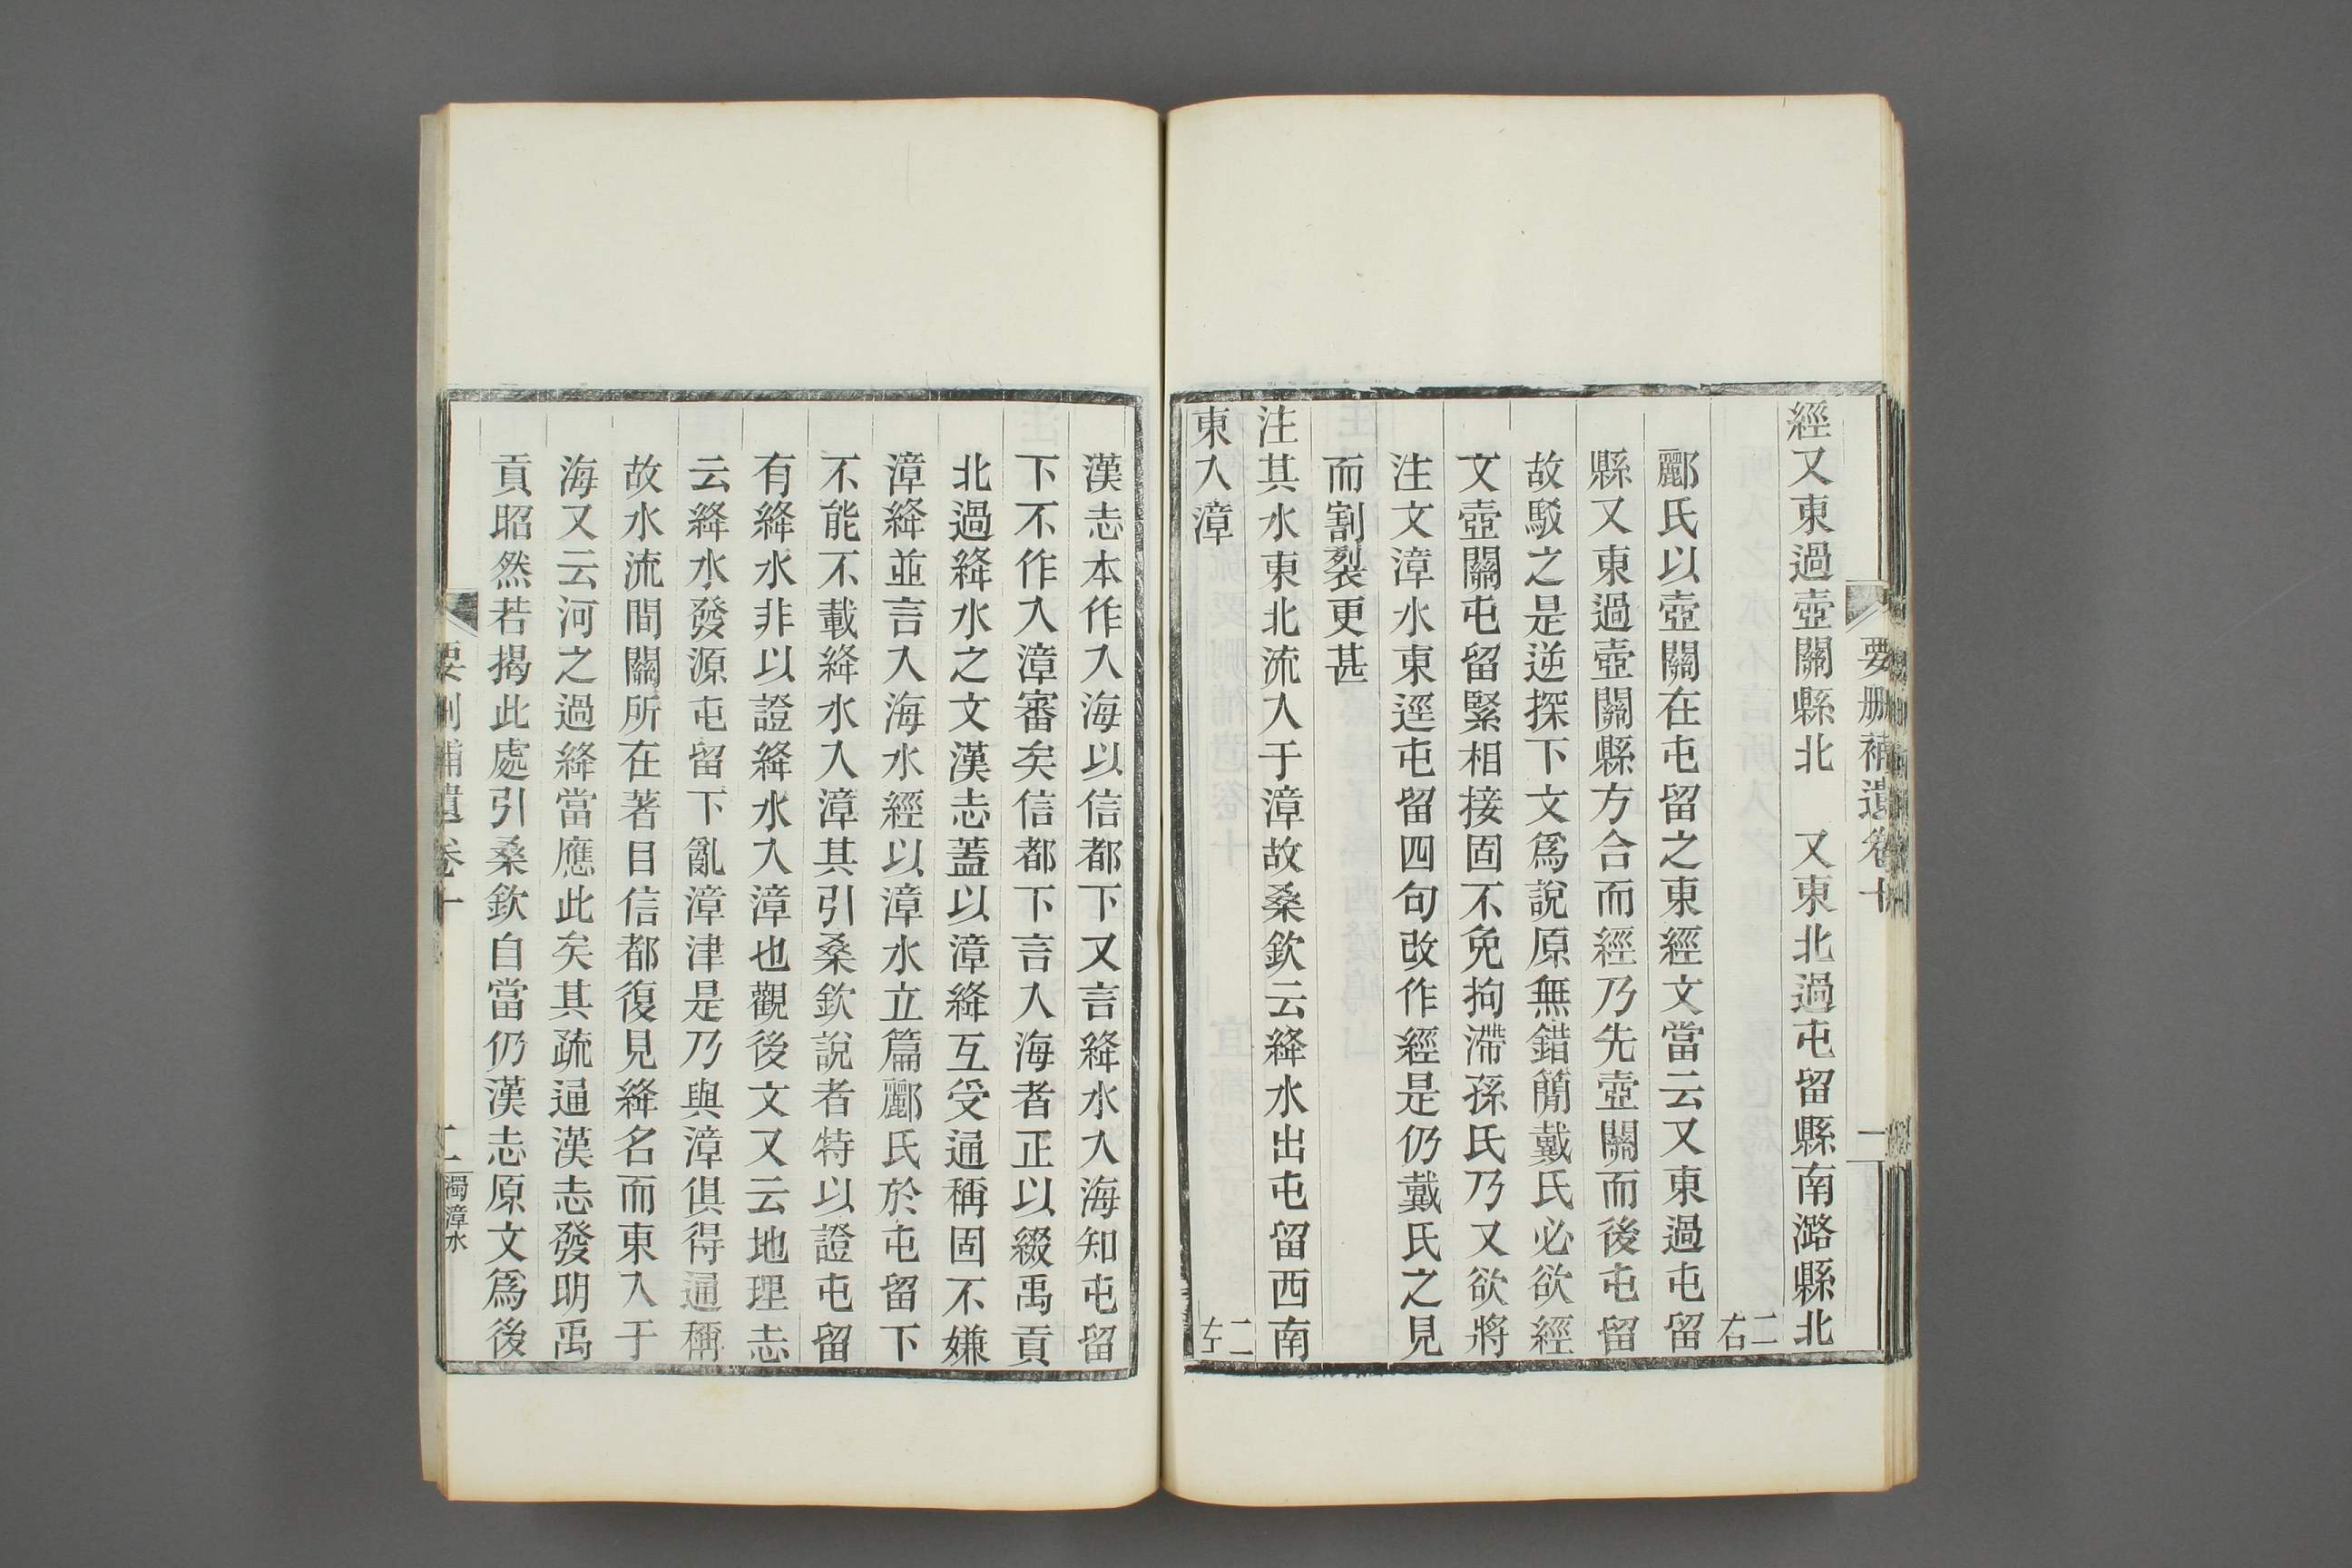 要刪補遺卷十
一
經又東過壺關縣北　又東北過屯留縣南潞縣北
二右
酈氏以壺關在屯留之東經文當云又東過屯留
縣又東過壺關縣方合而經乃先壺關而後屯留
故駁之是逆探下文爲說原無錯簡戴氏必欲經
文壺關屯留緊相接固不免拘滯孫氏乃又欲將
注文漳水東逕屯留四句改作經是仍戴氏之見
而割裂更甚
注其水東北流入于漳故桑欽云絳水出屯留西南
東入漳
二左
漢志本作入海以信都下又言絳水入海知屯留
下不作入漳審矣信都下言入海者正以綴禹貢
北過絳水之文漢志蓋以漳絳互受通稱固不嫌
漳絳並言入海水經以漳水立篇酈氏於屯留下
不能不載絳水入漳其引桑欽說者特以證屯留
有絳水非以證絳水入漳也觀後文又云地理志
云絳水發源屯留下亂漳津是乃與漳俱得通稱
故水流間關所在著目信都復見絳名而東入于
海又云河之過絳當應此矣其疏通漢志發明禹
貢昭然若揭此處引桑欽自當仍漢志原文爲後
要刪補遺卷十
二
濁漳水